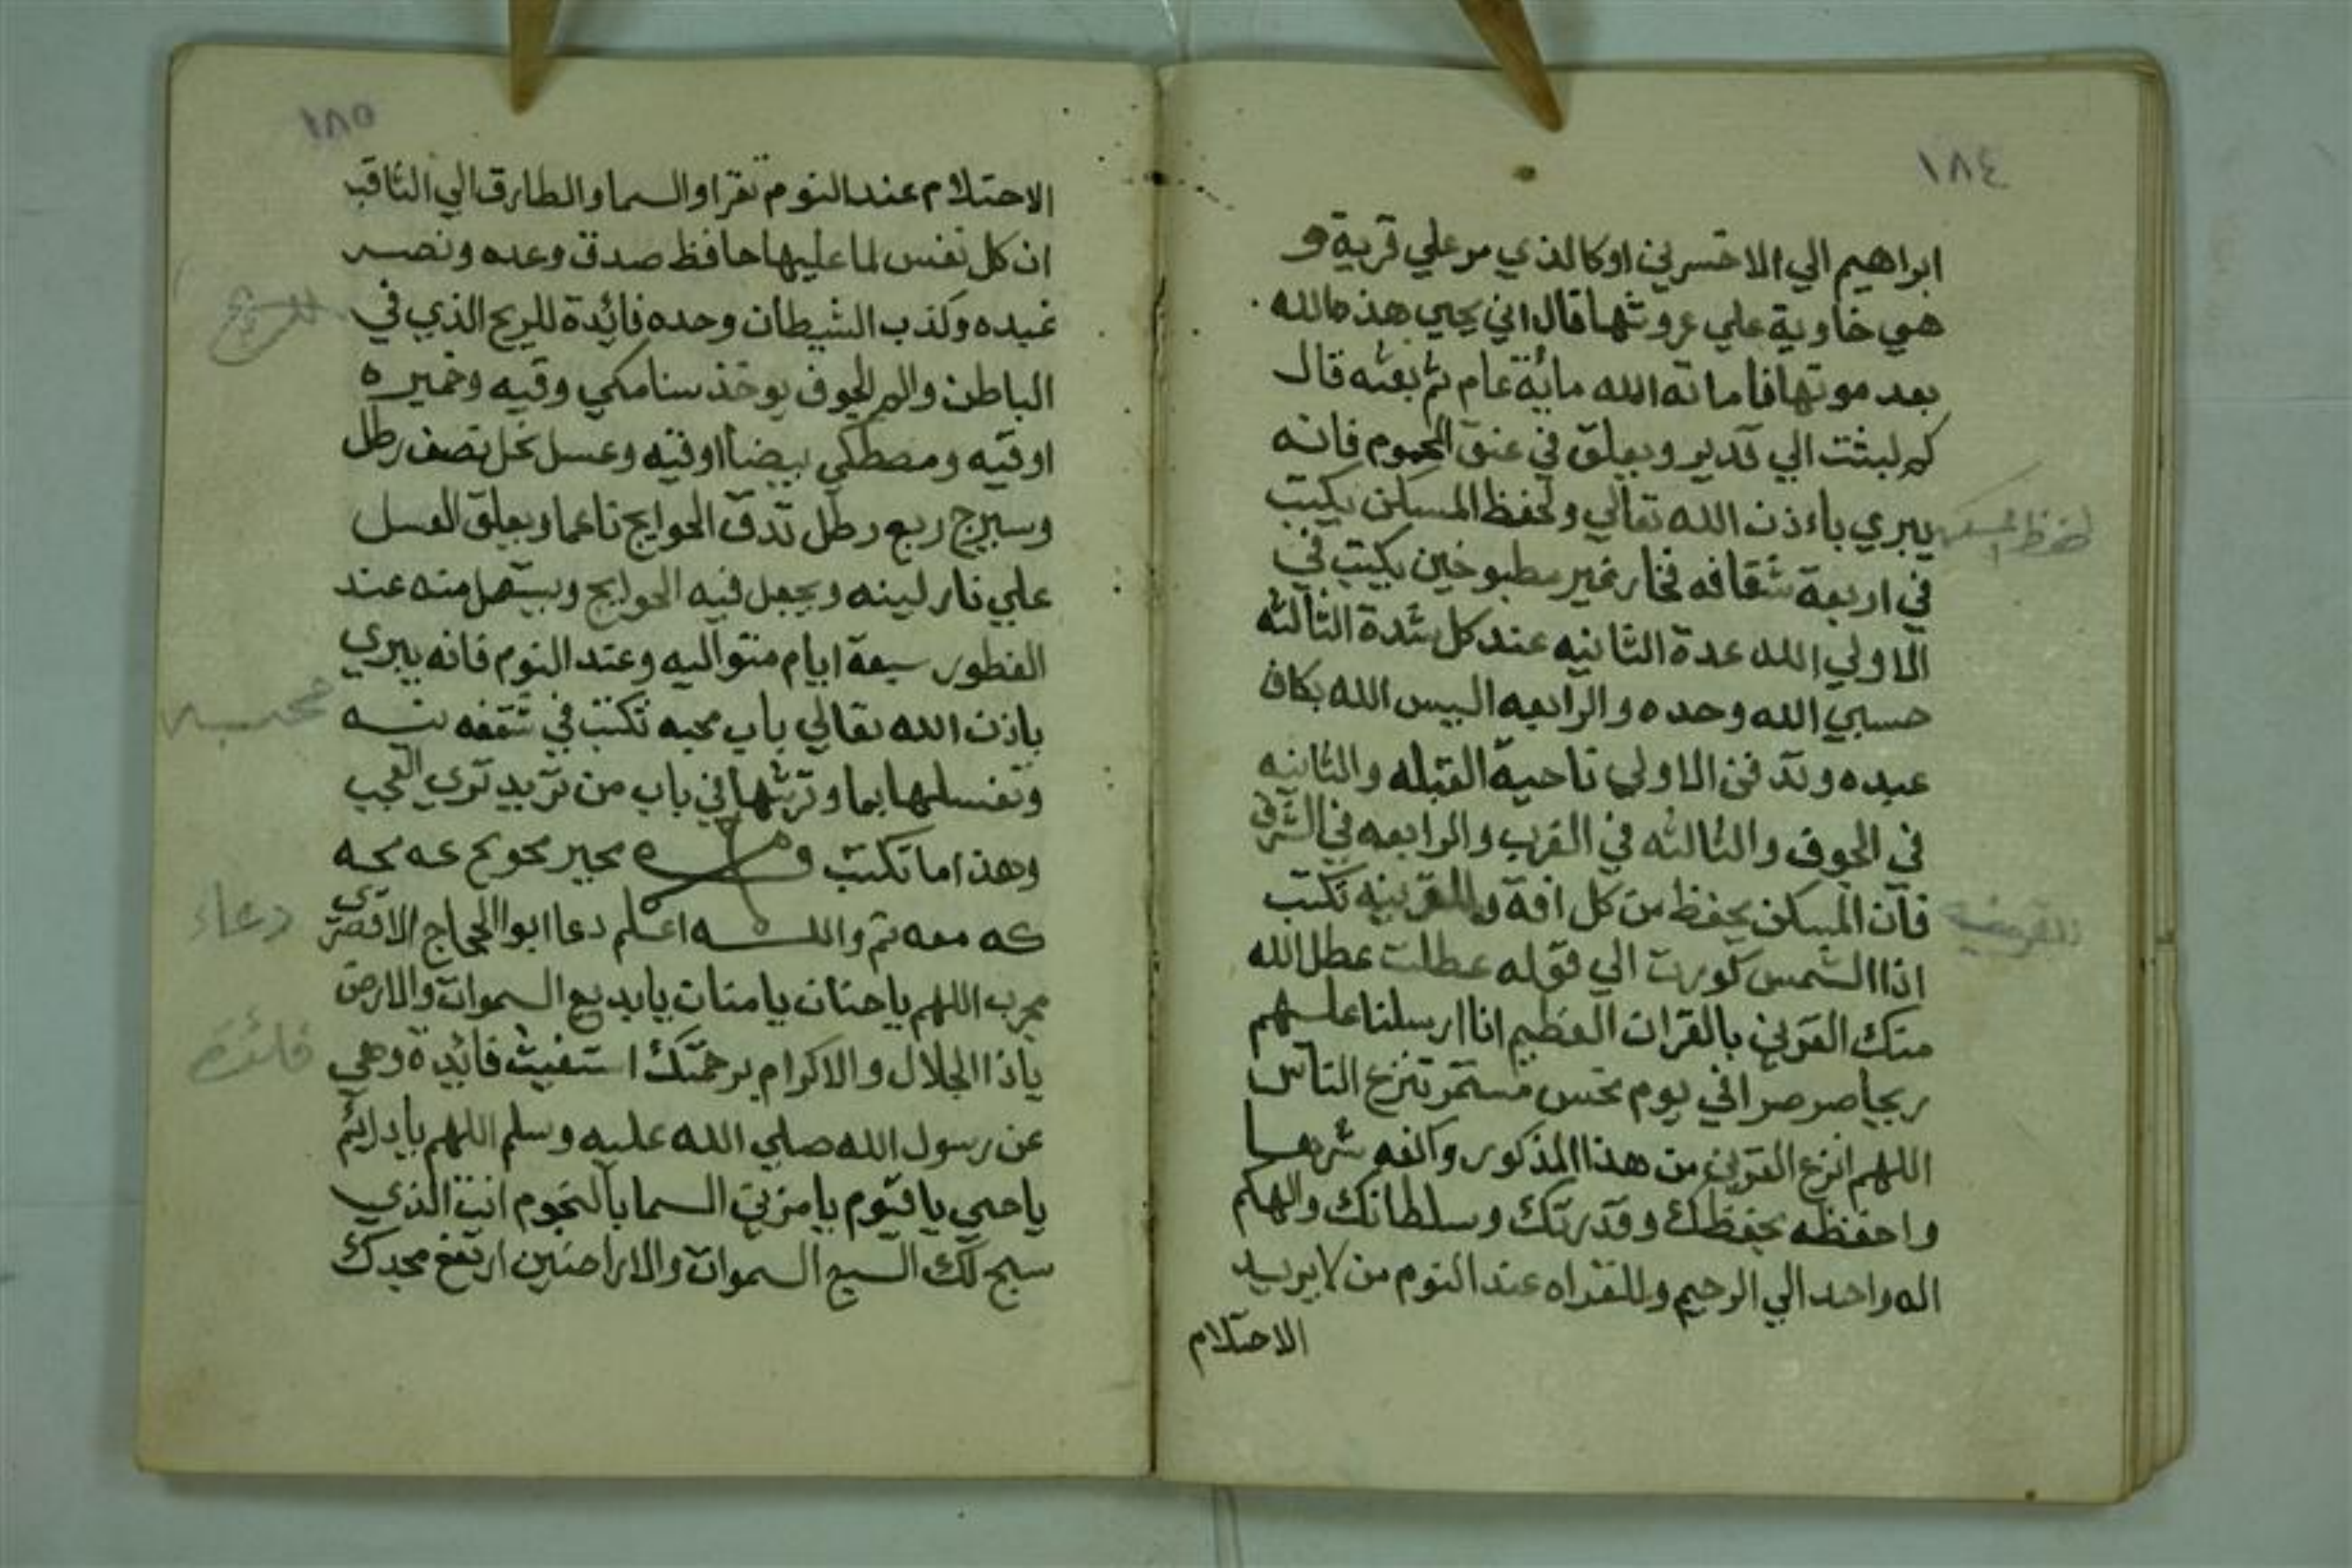 ١٨٤
ابراهيم الي الاخسرين اوكالذي مر علي قرية و
هي خاوية علي عروشها قال اني يحيي هذه الله
بعد موتها فاماته الله ماية عام ثم بعثه قال
كم لبثت الي قدير ويعلق في عنق المحموم فانه
يبري باءذن الله تعالي ولحفظ المسكن يكتب
في اربعة شقافه فخار غير مطبوخين يكتب في
الاولي الله عدة الثانيه عند كل شدة الثالثه
حسبي الله وحده والرابعه اليس الله بكاف
عبده وتدفن الاولي ناحية القبله والثانيه
في الجوف والثالثه في الغرب والرابعه في الشرق
فان المسكن يحفظ من كل افة وللقرينه تكتب
اذا الشمس كورت الي قوله عطلت عطل الله
منك القرين بالقران العظيم انا ارسلنا عليهم
ريحا صرصرا في يوم نحس مستمر تنزع الناس
اللهم انزع القرين من هذا المذكور واكفه شرها
واحفظه بحفظك وقدرتك وسلطانك والهكم
اله واحد الي الرحيم وللقراه عند النوم من لا يريد
الاحتلام
لحفظ المسكن
للقرينة
١٨٥
الاحتلام عند النوم تقرا والسما والطارق الي الثاقب
ان كل نفس لما عليها حافظ صدق وعده ونصر
عبده وكذب الشيطان وحده فائدة للريح الذي في
الباطن والجوف يوخذ سنامكي وقيه وخميره
اوقيه ومصطكي بيضا اوقيه وعسل نحل نصف رطل
وسيرج ربع رطل تدق الحوايج ناعما ويعلق العسل
علي نار لينه ويجعل فيه الحوايج ويستعمل منه عند
الفطور سبعة ايام متواليه وعند النوم فانه يبري
باذن الله تعالي باب محبه تكتب في شقفه نيه
وتغسلها بما وترشها في باب من تريد تري العجب
وهذا ما تكتب
كه معه تم والله اعلم دعا ابوا الحجاج الاقصري
مجرب اللهم ياحنان يامنان يابديع السموات والارض
ياذا الجلال والاكرام برحمتك استغيث فائدة وهي
عن رسول الله صلي الله عليه وسلم اللهم يادائم
ياحي ياقيوم يامزين السما بالنجوم انت الذي
سبح لك السبع السموات والاراضين ارتفع مجدك
للريح
محبه
دعاء
فائدة